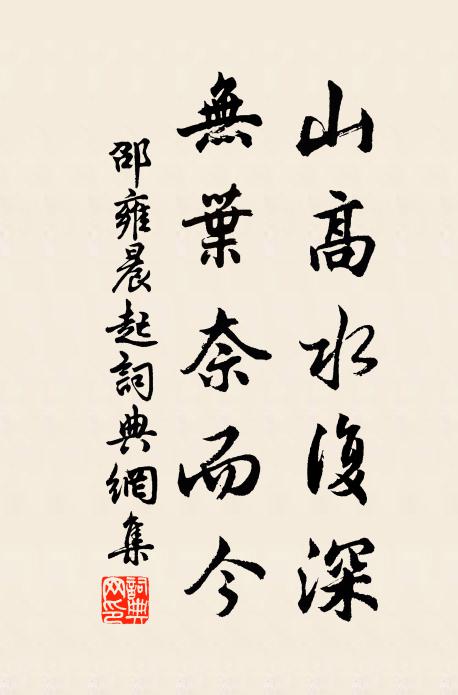 山高水復深
無葉奈而今
邵雍晨起詞典網集
詞典網印